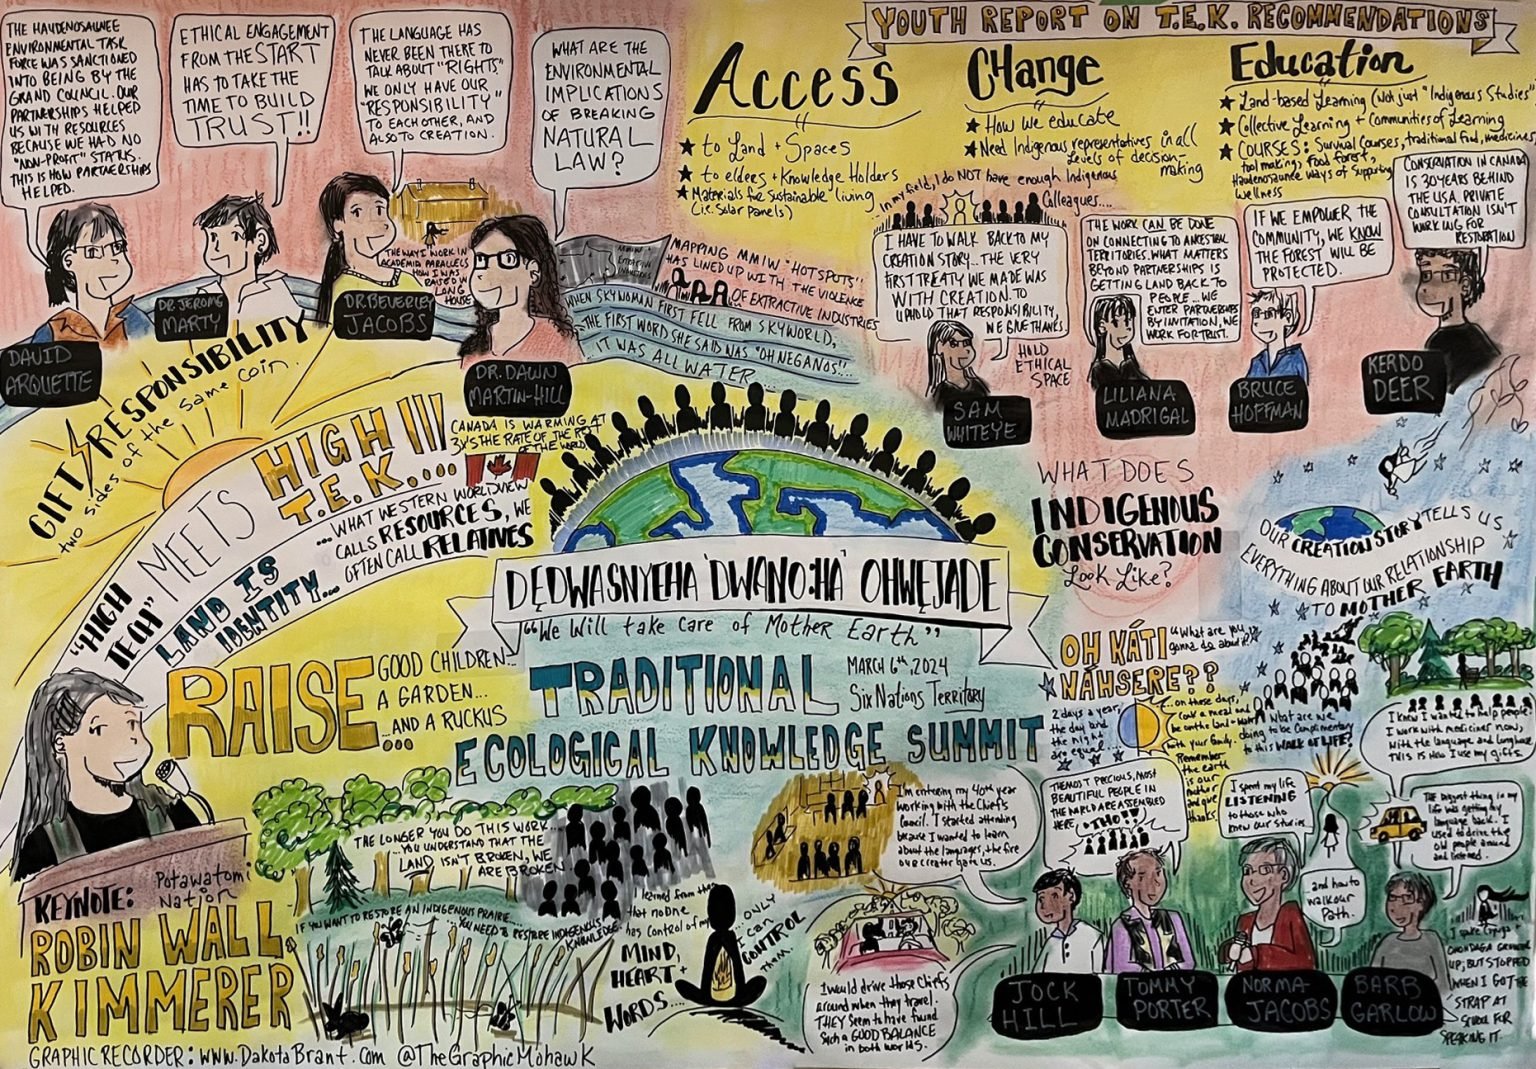 YOUTH REPORT ON T.E.K. RECOMMENDATIONS
THE HAUDENOSAUNEE
ENVIRONMENTAL TASK
FORCE WAS SANCTIONED
INTO BEING BY THE
GRAND COUNCIL. OUR
PARTNERSHIPS HELPED
US WITH RESOURCES
BECAUSE WE HAD NO
"NON-PROFIT" STATUS.
THIS IS HOW PARTNERSHIPS
HELPED.
DAVID
ARQUETTE
ETHICAL ENGAGEMENT
FROM THE START
HAS TO TAKE THE
TIME TO BUILD
TRUST!!
DR. JEROME
MARTY
THE LANGUAGE HAS
NEVER BEEN THERE TO
TALK ABOUT "RIGHTS".
WE ONLY HAVE OUR
"RESPONSIBILITY"
TO EACH OTHER, AND
ALSO TO CREATION.
DR. BEVERLEY
JACOBS
THE WAY I WORK IN
ACADEMIA PARALLELS
HOW I WAS
RAISED IN
LONG
HOUSE
WHAT ARE THE
ENVIRONMENTAL
IMPLICATIONS
OF BREAKING
NATURAL
LAW?
DR. DAWN
MARTIN-HILL
MAPPING MMIW "HOTSPOTS"
HAS LINED UP WITH THE VIOLENCE
OF EXTRACTIVE INDUSTRIES
WHEN SKYWOMAN FIRST FELL FROM SKYWORLD,
THE FIRST WORD SHE SAID WAS "OHNEGANOS"..
...IT WAS ALL WATER...
Access
★ to Land + Spaces
★ to elders + Knowledge Holders
★ Materials for Sustainable living
(i.e. Solar panels)
CHange
★ How we educate
★ Need Indigenous representatives in all
levels of decision-
making
Education
★ Land-based Learning (Not just "Indigenous Studies"
★ Collective Learning + Communities of Learning
★ COURSES: Survival Courses, traditional food, medicines,
tool making, Food forest,
Haudenosaunee ways of Supporting
wellness
In my field, I do NOT have enough Indigenous
Colleagues....
I HAVE TO WALK BACK TO MY
CREATION STORY... THE VERY
FIRST TREATY WE MADE WAS
WITH CREATION. TO
UPHOLD THAT RESPONSIBILITY,
WE GIVE THANKS
HOLD
ETHICAL
SPACE
SAM
WHITEYE
THE WORK CAN BE DONE
ON CONNECTING TO ANCESTRAL
TERRITORIES. WHAT MATTERS
BEYOND PARTNERSHIPS IS
GETTING LAND BACK TO
PEOPLE... WE
ENTER PARTNERSHIPS
BY INVITATION, WE
WORK FOR TRUST.
LILIANA
MADRIGAL
IF WE EMPOWER THE
COMMUNITY, WE KNOW
THE FOREST WILL BE
PROTECTED.
BRUCE
HOFFMAN
CONSERVATION IN CANADA
IS 30 YEARS BEHIND
THE USA. PRIVATE
CONSULTATION ISN'T
WORKING FOR
RESTORATION
KERDO
DEER
GIFT/RESPONSIBILITY
two sides of the same coin.
"HIGH
TECH" MEETS
HIGH
T.E.K....
LAND IS
IDENTITY...
CANADA IS WARMING AT
3X'S THE RATE OF THE REST
OF THE WORLD
...WHAT WESTERN WORLDVIEW
CALLS RESOURCES, WE
OFTEN CALL RELATIVES
DĘDWASNYEHA 'DWANO:HA' OHWĘJADE
"We Will take care of Mother Earth"
TRADITIONAL
ECOLOGICAL KNOWLEDGE SUMMIT
MARCH 6th, 2024
Six Nations Territory
RAISE
GOOD CHILDREN...
A GARDEN...
...AND A RUCKUS
KEYNOTE: Potawatomi
Nation
ROBIN WALL
KIMMERER
THE LONGER YOU DO THIS WORK...
...YOU UNDERSTAND THAT THE
LAND ISN'T BROKEN, WE
ARE BROKEN
IF YOU WANT TO RESTORE AN INDIGENOUS PRAIRIE....
...YOU NEED TO RESTORE INDIGENOUS
KNOWLEDGE.
I learned from this
that no one
has control of my
MIND,
HEART +
WORDS....
...ONLY
I can
CONTROL
them.
WHAT DOES
INDIGENOUS
CONSERVATION
Look Like?
OUR CREATION STORY TELLS US
EVERYTHING ABOUT OUR RELATIONSHIP
TO MOTHER EARTH
OH KÁTI
NÁHSERE??
"What are you
gonna do about it"
2 days a year,
the day and
the night
are equal..
...on those days,
cook a meal and
be on the land + water
with your family.
Remember
the earth
is our
mother
and give
thanks.
What are we
doing to be complimentary
to this WORK OF LIFE?
I'm entering my 40th year
working with the Chiefs
Council. I started attending
because I wanted to learn
about the languages, the fire
our creator gave us.
I would drive those Chiefs
around when they travel.
THEY seem to have found
such a GOOD BALANCE
in both worlds.
JOCK
HILL
THE MOST PRECIOUS, MOST
BEAUTIFUL PEOPLE IN
THE WORLD ARE ASSEMBLED
HERE.
TOMMY
PORTER
I spent my life
LISTENING
to those who
knew our stories
and how to
walk our
path.
NORMA
JACOBS
I knew I wanted to help people.
I work with medicines now,
with the language and longhouse.
THIS IS how I use my gifts.
THE biggest thing in my
life was getting my
language back. I
used to drive the
old people around
and listened.
I spoke Cayuga
ONONDAGA GROWING
UP; BUT STOPPED
WHEN I GOT THE
STRAP AT
SCHOOL FOR
SPEAKING IT.
BARB
GARLOW
GRAPHIC RECORDER: WWW.DakotaBrant.Com @TheGraphicMohawk